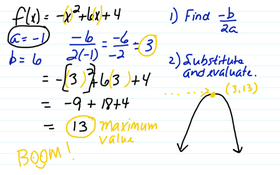 f(x) = -x² + 6x + 4
a = -1
b = 6
-6 / 2(-1) = -6 / -2 = 3
-[3]² + 6(3) + 4
= -9 + 18 + 4
= 13 maximum value
BOOM!
1) Find -b / 2a
2) Substitute
and evaluate.
(3,13)